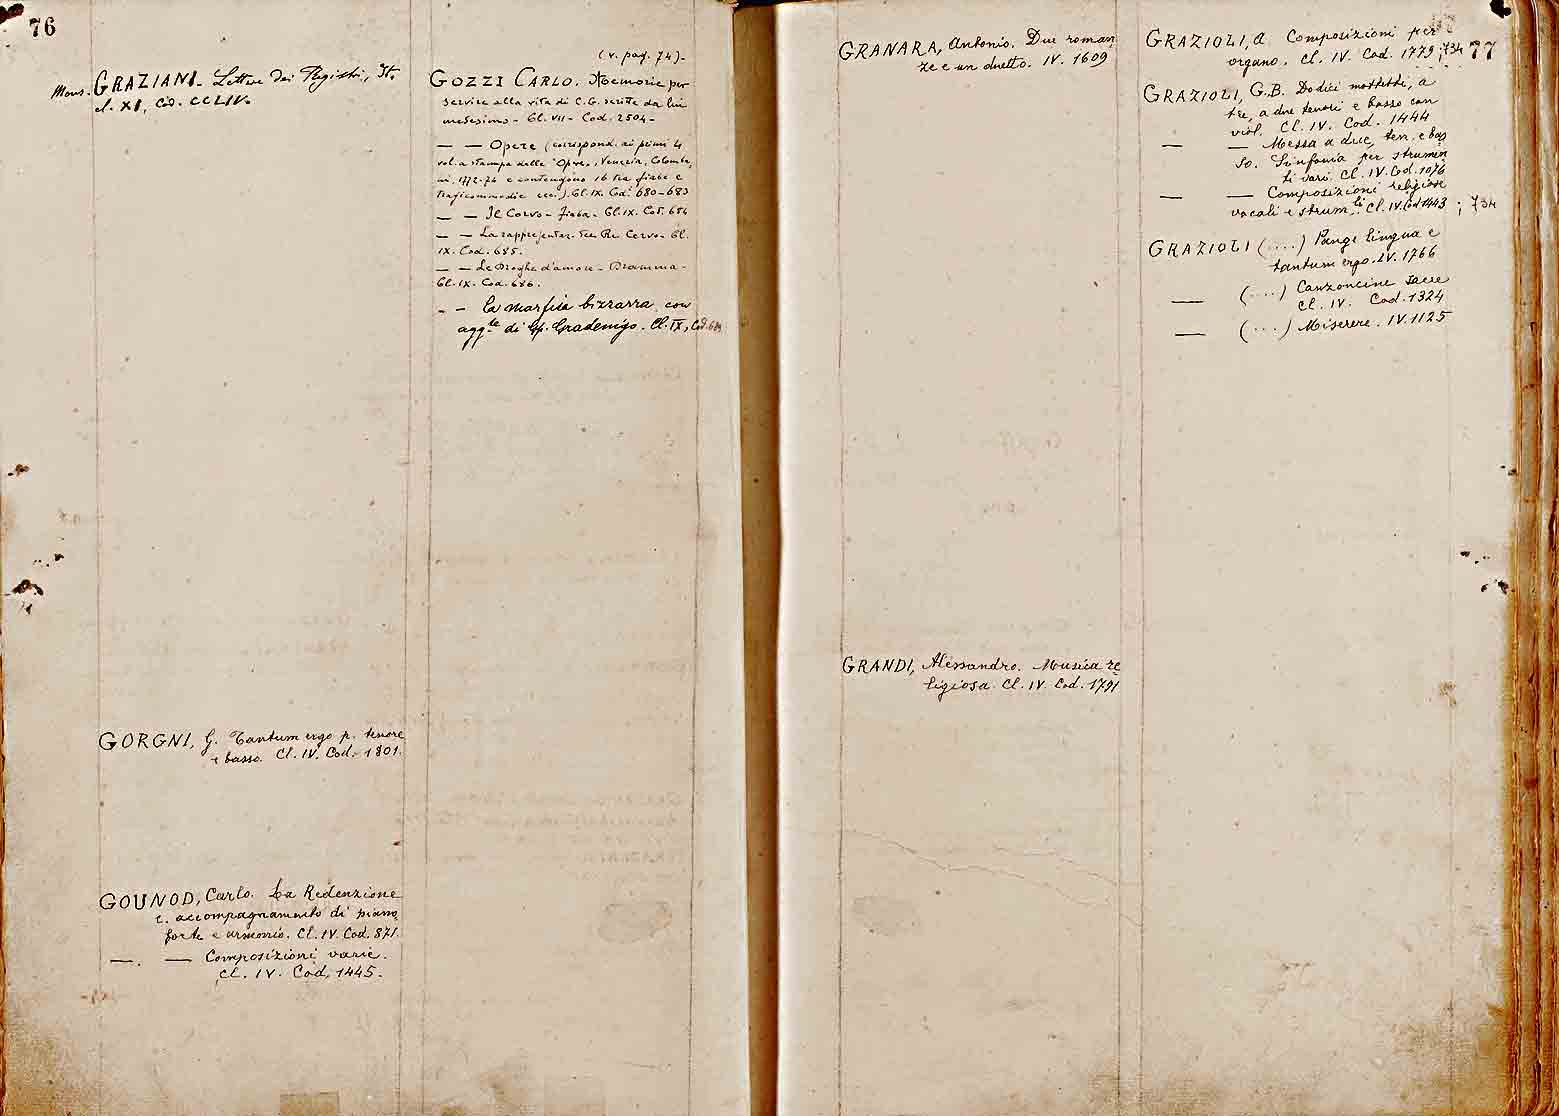 76
Mons. GRAZIANI. Lettere dei Registri, It.
cl. XI, Cod. CCLIV.
GORGNI, G. Tantum ergo p. tenore
e basso. Cl. IV. Cod. 1801.
GOUNOD, Carlo. La Redenzione
c. accompagnamento di piano
forte e armonio. Cl. IV. Cod. 871.
—. — Composizioni varie.
Cl. IV. Cod. 1445.
(v. pag. 74).
GOZZI CARLO. Memorie per
servire alla vita di C. G. scritte da lui
medesimo - Cl. VII - Cod. 2504 -
— — Opere (corrispond. ai primi 4
vol. a stampa delle "Opere, Venezia, Colomba,
ni, 1772-74 e contengono 16 tra fiabe e
tragicommedie ecc.). Cl. IX. Cod. 680-683
— — Il Corvo - Fiaba - Cl. IX. Cod. 684
— — La rappresentaz. del Re Cervo - Cl.
IX. Cod. 685.
— — Le Droghe d'amore - Dramma -
Cl. IX. Cod. 686.
- - La Marfisa bizzarra con
agg.te di Gradenigo. Cl. IX, Cod.
GRANARA, Antonio. Due roman
ze e un duetto. IV. 1609
GRANDI, Alessandro. Musica re
ligiosa. Cl. IV. Cod. 1791
77
GRAZIOLI, A Composizioni per
organo. Cl. IV. Cod. 1779; 734
GRAZIOLI, G.B. Dodici mottetti, a
tre, a due tenori e basso con
viol. Cl. IV. Cod. 1444
— — Messa a due, ten. e bas
so. Sinfonia per strumen
ti vari. Cl. IV. Cod. 1076
— — Composizioni religiose
vocali e strum.li Cl. IV. Cod 1443; 734
GRAZIOLI (....) Pange lingua e
tantum ergo. IV. 1766
— (....) Canzoncine sacre
Cl. IV. Cod. 1324
— (....) Miserere. IV. 1125